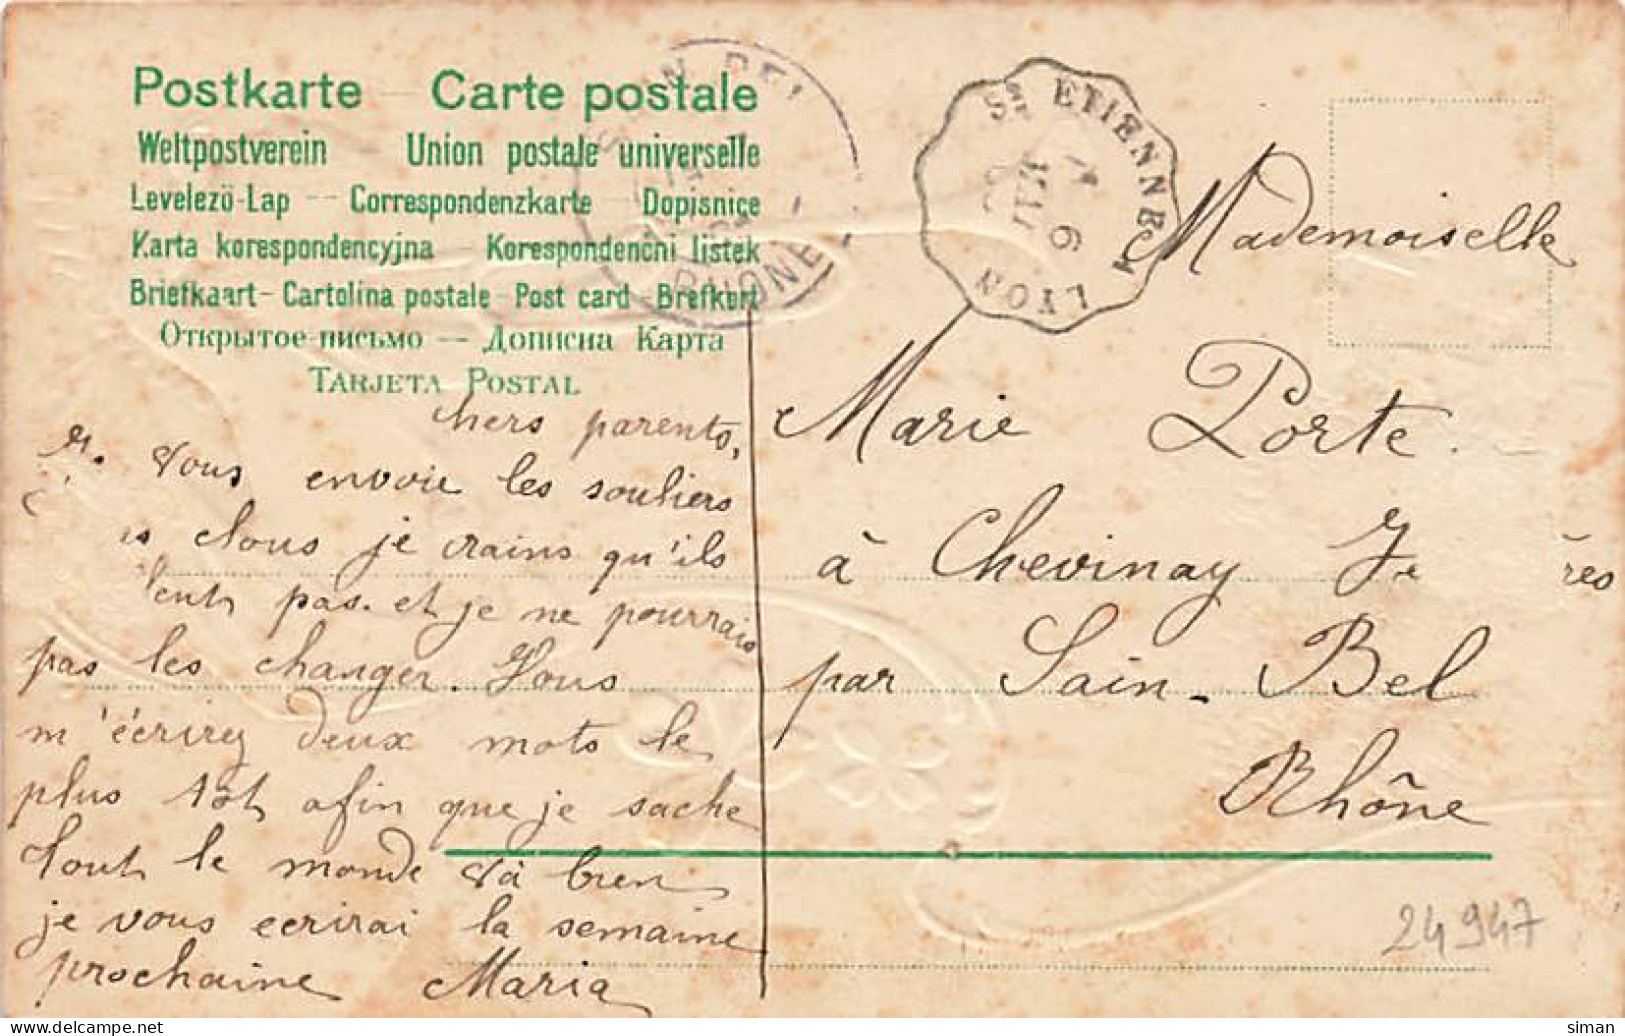 Postkarte Carte postale
Weltpostverein Union postale universelle
Levelezö-Lap - Correspondenzkarte - Dopisnice
Karta korespondencyjna - Korespondenčni listek
Briefkaart - Cartolina postale - Post card - Brefkort
Открытое письмо - Дописна Карта
TARJETA POSTAL
RHONE
ST ETIENNE A LYON
6
hers parents,
vous envoie les souliers
clous je crains qu'ils
pas. et je ne pourrais
pas les changer. Vous
m'écrirez deux mots le
plus tôt afin que je sache
tout le monde và bien
je vous ecrirai la semaine
prochaine Maria
Mademoiselle
Marie Porte.
à Chevinay
res
par Sain-Bel
Rhône
24947
siman
delcampe.net